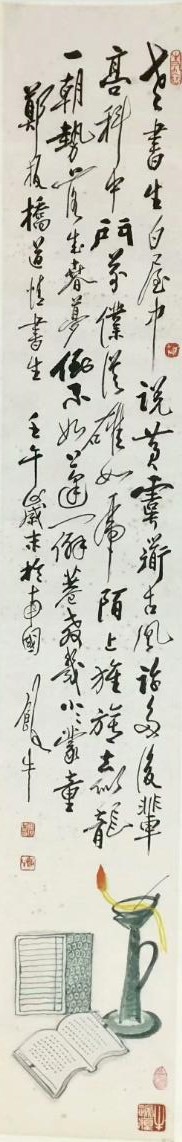 老書生白屋中說黃虞道古風許多後輩
高科中門前僕從雄如虎陌上旌旗去似龍
一朝勢落成春夢倒不如蓬門僻巷教幾小小蒙童
鄭板橋道情書生 壬午歲末於南國 牛